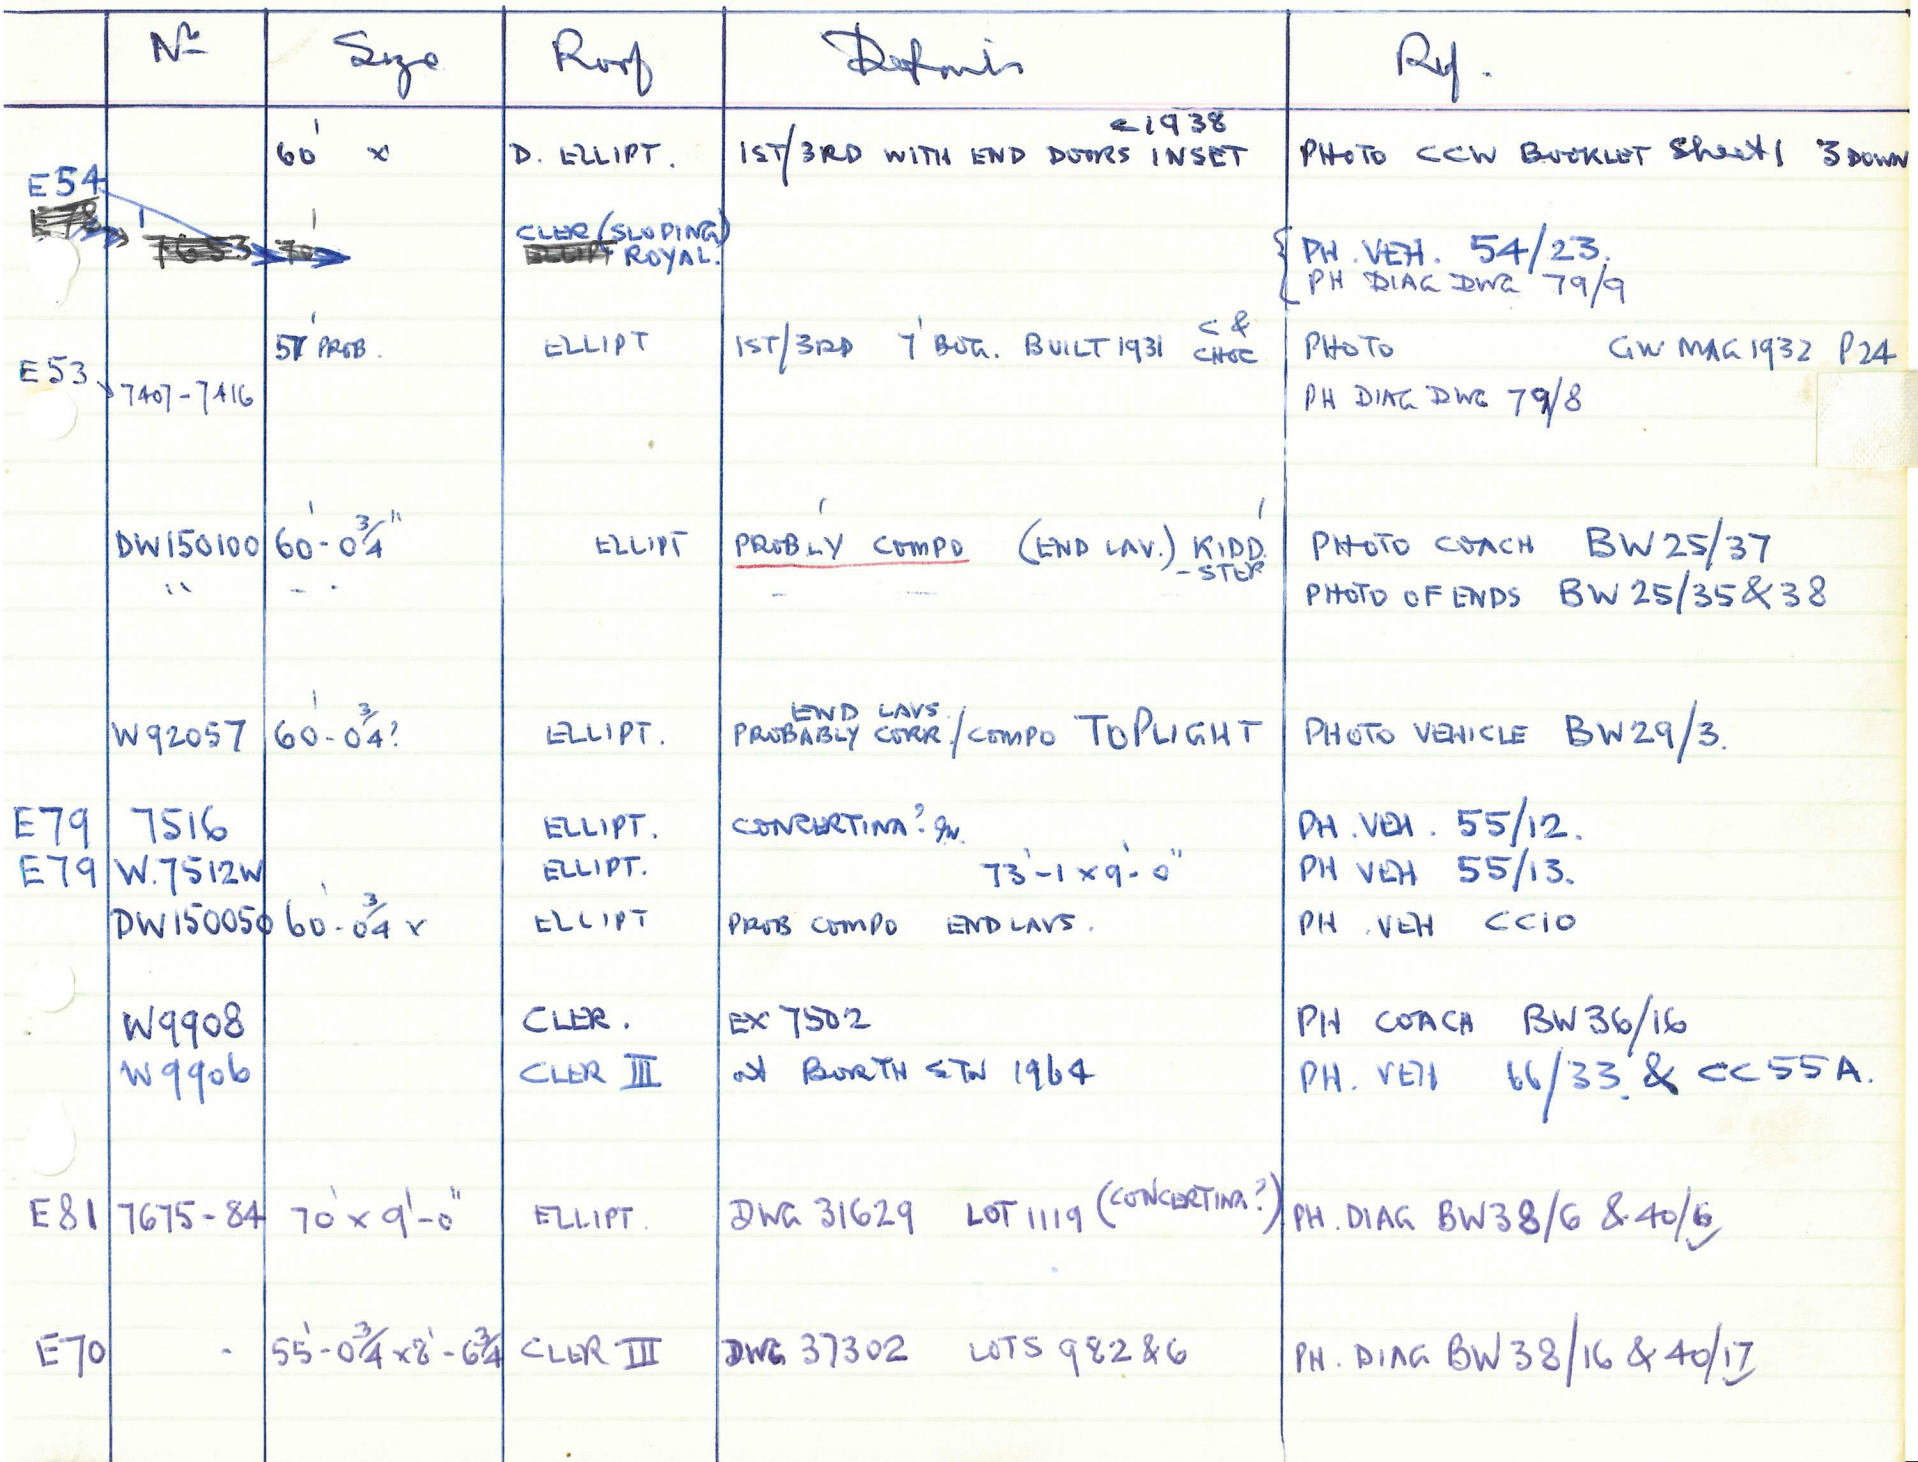 No Size Roof Details Ref.
c1938
60' x D. ELLIPT. 1ST/3RD WITH END DOORS INSET PHOTO CCW BOOKLET Sheet 1 3 DOWN
E54
E78 7653 70' CLER (SLOPING)
ELLIPT ROYAL. PH. VEH. 54/23.
PH DIAG DWG 79/9
57' PROB. ELLIPT 1ST/3RD 7' BOG. BUILT 1931 C & CHOC PHOTO GW MAG 1932 P24
E53 7407-7416 PH DIAG DWG 79/8
DW150100 60'-0 3/4" ELLIPT PROB'LY COMPO (END LAV.) KIDD'. PHOTO COACH BW 25/37
-STER
" - . - - PHOTO OF ENDS BW 25/35 & 38
END LAVS
W92057 60'-0 3/4? ELLIPT. PROBABLY CORR./COMPO TOPLIGHT PHOTO VEHICLE BW29/3.
E79 7516 ELLIPT. CONCERTINA? PH. VEH. 55/12.
E79 W.7512W ELLIPT. 73'-1 x 9'-0" PH VEH 55/13.
DW150050 60'-0 3/4 x ELLIPT PROB COMPO END LAVS. PH. VEH CC10
W9908 CLER. EX 7502 PH COACH BW36/16
W9906 CLER III at BORTH STN 1964 PH. VEH 66/33. & CC55A.
E81 7675-84 70' x 9'-0" ELLIPT. DWG 31629 LOT 1119 (CONCERTINA?) PH. DIAG BW38/6 & 40/6
E70 - 55'-0 3/4 x 8'-6 3/4 CLER III DWG 37302 LOTS 982 & 6 PH. DIAG BW38/16 & 40/17